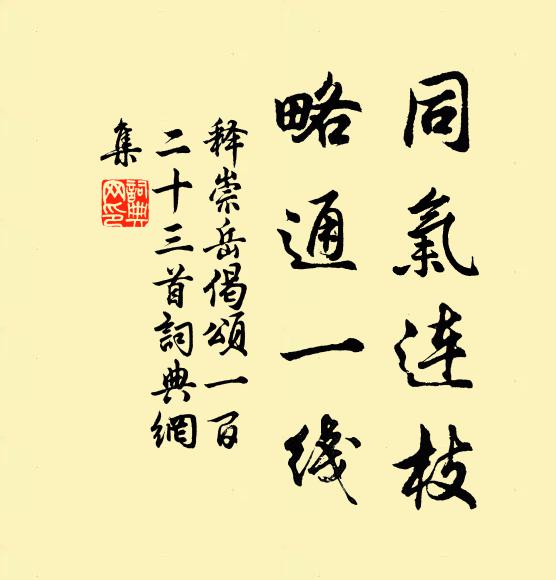 同氣连枝
略通一线
释崇岳偈頌一百
二十三首詞典網
集
詞典网印